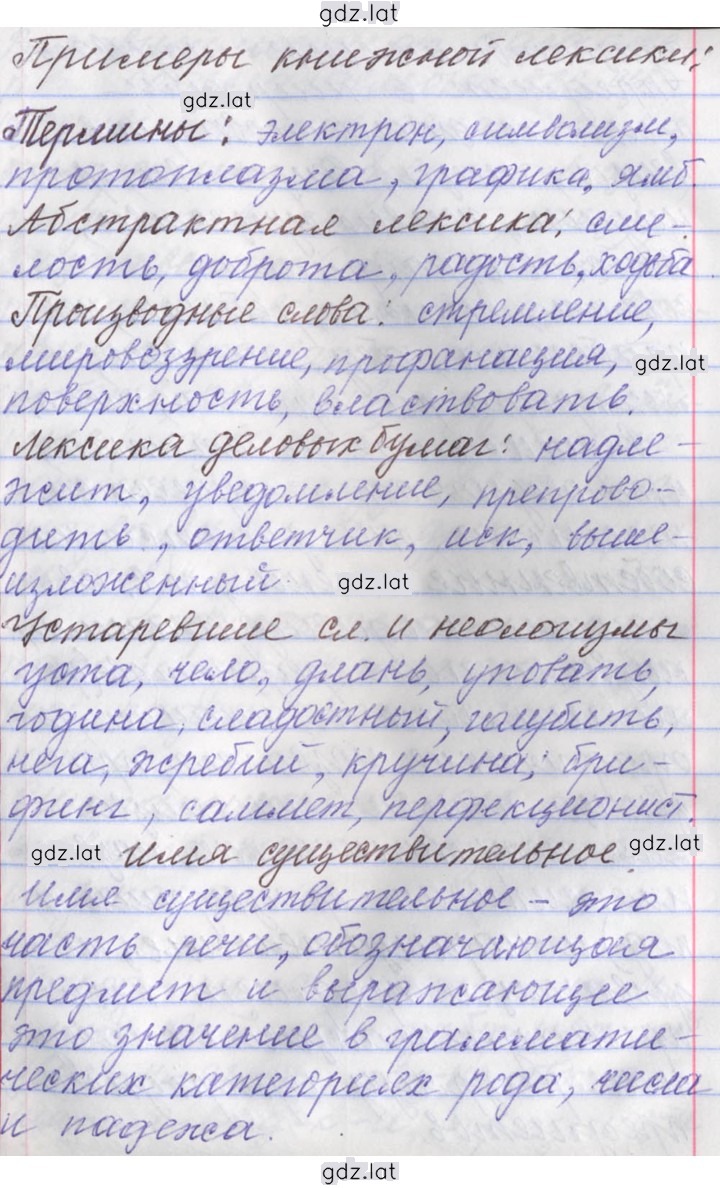 gdz.lat
Примеры книжной лексики:
gdz.lat
Термины: электрон, символизм,
протоплазма, графика, ямб.
Абстрактная лексика: сме-
лость, доброта, радость, ходьба.
Производные слова: стремление,
мировоззрение, профанация,
gdz.lat
поверхность, властвовать.
Лексика деловых бумаг: надле-
жит, уведомление, препрово-
дить, ответчик, иск, выше-
изложенный.
gdz.lat
Устаревшие сл. и неологизмы
уста, чело, длань, уповать,
година, сладостный, голубить,
нега, жребий, кручина; бри-
финг, саммет, перфекционист.
gdz.lat Имя существительное. gdz.lat
Имя существительное - это
часть речи, обозначающая
предмет и выражающее
это значение в граммати-
ческих категориях рода, числа
и падежа.
gdz.lat